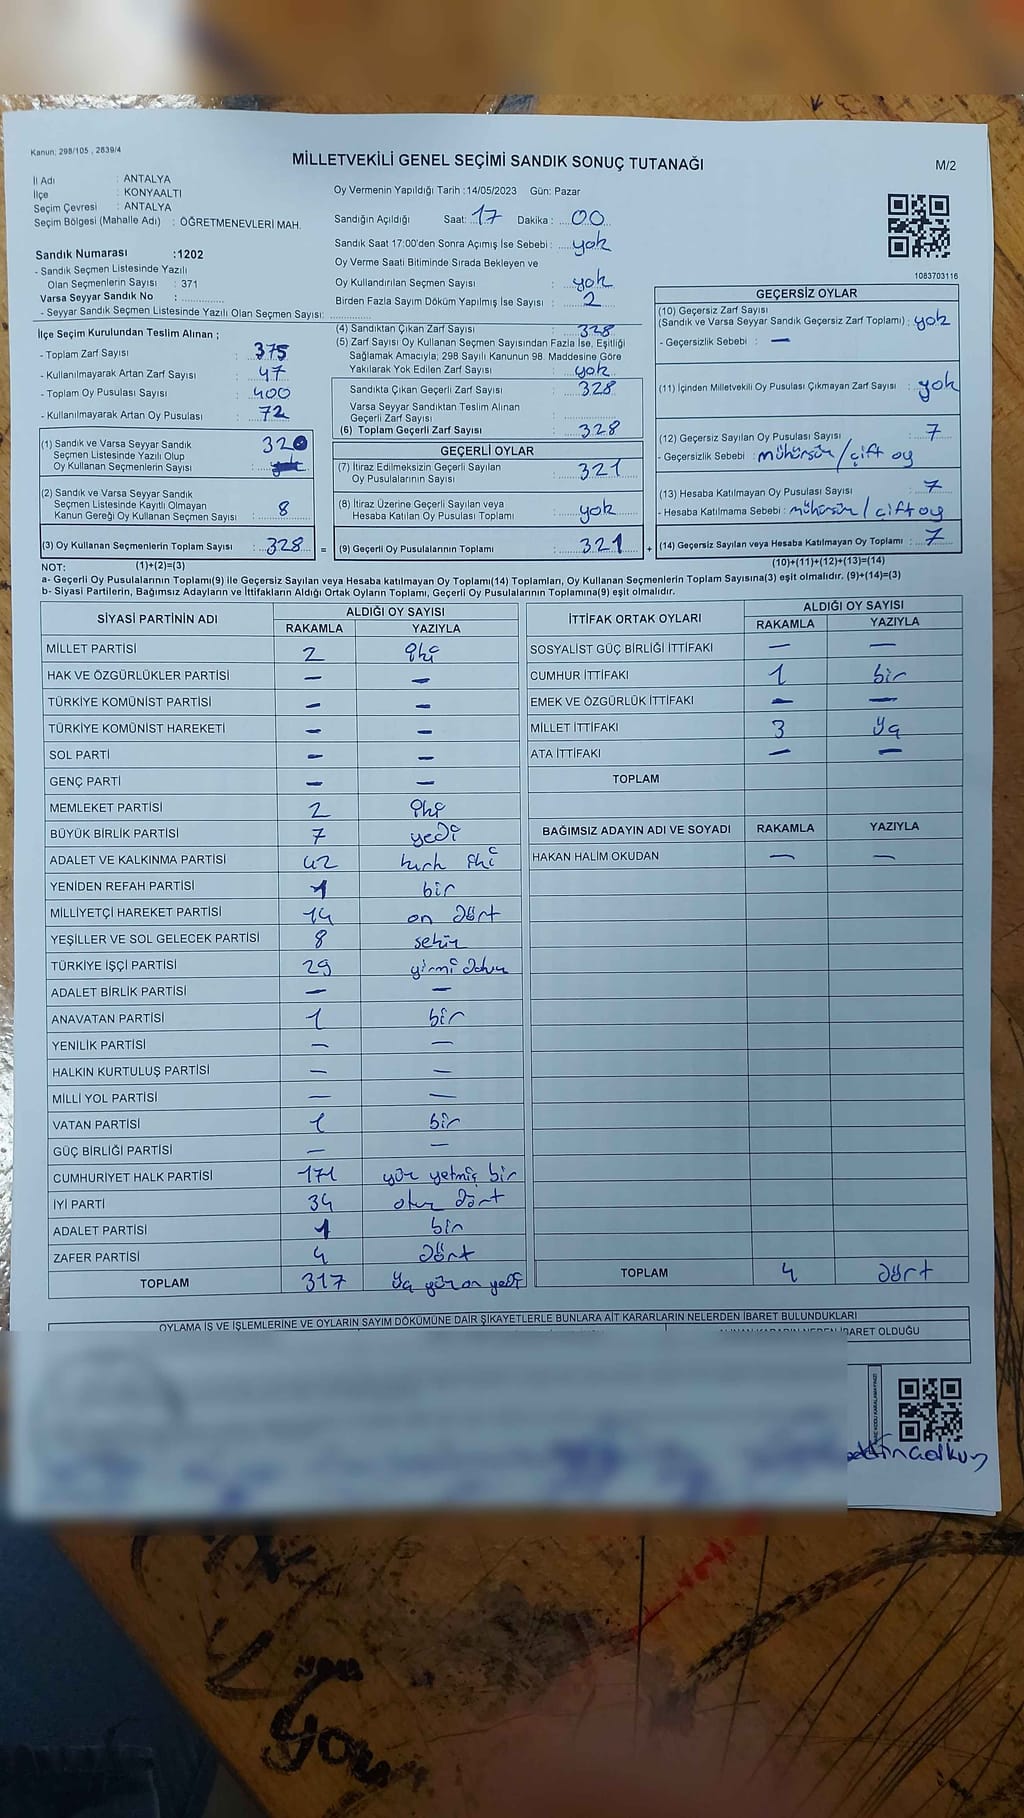 Kanun; 298/105 , 2839/4
MİLLETVEKİLİ GENEL SEÇİMİ SANDIK SONUÇ TUTANAĞI
M/2
İl Adı : ANTALYA
İlçe : KONYAALTI
Seçim Çevresi : ANTALYA
Seçim Bölgesi (Mahalle Adı) : ÖĞRETMENEVLERİ MAH.
Oy Vermenin Yapıldığı Tarih :14/05/2023 Gün: Pazar
Sandığın Açıldığı Saat: 17 Dakika : 00
Sandık Saat 17:00'den Sonra Açımış İse Sebebi : yok
Oy Verme Saati Bitiminde Sırada Bekleyen ve
Oy Kullandırılan Seçmen Sayısı : yok
Birden Fazla Sayım Döküm Yapılmış İse Sayısı : 2
1083703116
Sandık Numarası :1202
- Sandık Seçmen Listesinde Yazılı
Olan Seçmenlerin Sayısı : 371
Varsa Seyyar Sandık No :
- Seyyar Sandık Seçmen Listesinde Yazılı Olan Seçmen Sayısı:
İlçe Seçim Kurulundan Teslim Alınan ;
- Toplam Zarf Sayısı : 375
- Kullanılmayarak Artan Zarf Sayısı : 47
- Toplam Oy Pusulası Sayısı : 400
- Kullanılmayarak Artan Oy Pusulası : 72
(1) Sandık ve Varsa Seyyar Sandık 320
Seçmen Listesinde Yazılı Olup
Oy Kullanan Seçmenlerin Sayısı :
(2) Sandık ve Varsa Seyyar Sandık
Seçmen Listesinde Kayıtlı Olmayan
Kanun Gereği Oy Kullanan Seçmen Sayısı : 8
(3) Oy Kullanan Seçmenlerin Toplam Sayısı : 328 =
(4) Sandıktan Çıkan Zarf Sayısı : 328
(5) Zarf Sayısı Oy Kullanan Seçmen Sayısından Fazla İse, Eşitliği
Sağlamak Amacıyla; 298 Sayılı Kanunun 98. Maddesine Göre
Yakılarak Yok Edilen Zarf Sayısı : yok
Sandıkta Çıkan Geçerli Zarf Sayısı : 328
Varsa Seyyar Sandıktan Teslim Alınan
Geçerli Zarf Sayısı :
(6) Toplam Geçerli Zarf Sayısı : 328
GEÇERLİ OYLAR
(7) İtiraz Edilmeksizin Geçerli Sayılan
Oy Pusulalarının Sayısı : 321
(8) İtiraz Üzerine Geçerli Sayılan veya
Hesaba Katılan Oy Pusulası Toplamı : yok
(9) Geçerli Oy Pusulalarının Toplamı : 321 +
GEÇERSİZ OYLAR
(10) Geçersiz Zarf Sayısı
(Sandık ve Varsa Seyyar Sandık Geçersiz Zarf Toplamı) : yok
- Geçersizlik Sebebi : —
(11) İçinden Milletvekili Oy Pusulası Çıkmayan Zarf Sayısı : yok
(12) Geçersiz Sayılan Oy Pusulası Sayısı : 7
- Geçersizlik Sebebi : mühürsüz / çift oy
(13) Hesaba Katılmayan Oy Pusulası Sayısı : 7
- Hesaba Katılmama Sebebi : mühürsüz / çift oy
(14) Geçersiz Sayılan veya Hesaba Katılmayan Oy Toplamı : 7
NOT: (1)+(2)=(3) (10)+(11)+(12)+(13)=(14)
a- Geçerli Oy Pusulalarının Toplamı(9) ile Geçersiz Sayılan veya Hesaba katılmayan Oy Toplamı(14) Toplamları, Oy Kullanan Seçmenlerin Toplam Sayısına(3) eşit olmalıdır. (9)+(14)=(3)
b- Siyasi Partilerin, Bağımsız Adayların ve İttifakların Aldığı Ortak Oyların Toplamı, Geçerli Oy Pusulalarının Toplamına(9) eşit olmalıdır.
SİYASİ PARTİNİN ADI ALDIĞI OY SAYISI
RAKAMLA YAZIYLA
MİLLET PARTİSİ 2 iki
HAK VE ÖZGÜRLÜKLER PARTİSİ — —
TÜRKİYE KOMÜNİST PARTİSİ — —
TÜRKİYE KOMÜNİST HAREKETİ — —
SOL PARTİ — —
GENÇ PARTİ — —
MEMLEKET PARTİSİ 2 iki
BÜYÜK BİRLİK PARTİSİ 7 yedi
ADALET VE KALKINMA PARTİSİ 42 kırk iki
YENİDEN REFAH PARTİSİ 1 bir
MİLLİYETÇİ HAREKET PARTİSİ 14 on dört
YEŞİLLER VE SOL GELECEK PARTİSİ 8 sekiz
TÜRKİYE İŞÇİ PARTİSİ 29 yirmi dokuz
ADALET BİRLİK PARTİSİ — —
ANAVATAN PARTİSİ 1 bir
YENİLİK PARTİSİ — —
HALKIN KURTULUŞ PARTİSİ — —
MİLLİ YOL PARTİSİ — —
VATAN PARTİSİ 1 bir
GÜÇ BİRLİĞİ PARTİSİ — —
CUMHURİYET HALK PARTİSİ 171 yüz yetmiş bir
İYİ PARTİ 34 otuz dört
ADALET PARTİSİ 1 bir
ZAFER PARTİSİ 4 dört
TOPLAM 317 üç yüz on yedi
İTTİFAK ORTAK OYLARI ALDIĞI OY SAYISI
RAKAMLA YAZIYLA
SOSYALİST GÜÇ BİRLİĞİ İTTİFAKI — —
CUMHUR İTTİFAKI 1 bir
EMEK VE ÖZGÜRLÜK İTTİFAKI — —
MİLLET İTTİFAKI 3 üç
ATA İTTİFAKI — —
TOPLAM
BAĞIMSIZ ADAYIN ADI VE SOYADI RAKAMLA YAZIYLA
HAKAN HALİM OKUDAN — —
TOPLAM 4 dört
OYLAMA İŞ VE İŞLEMLERİNE VE OYLARIN SAYIM DÖKÜMÜNE DAİR ŞİKAYETLERLE BUNLARA AİT KARARLARIN NELERDEN İBARET BULUNDUKLARI
İBARET OLDUĞU